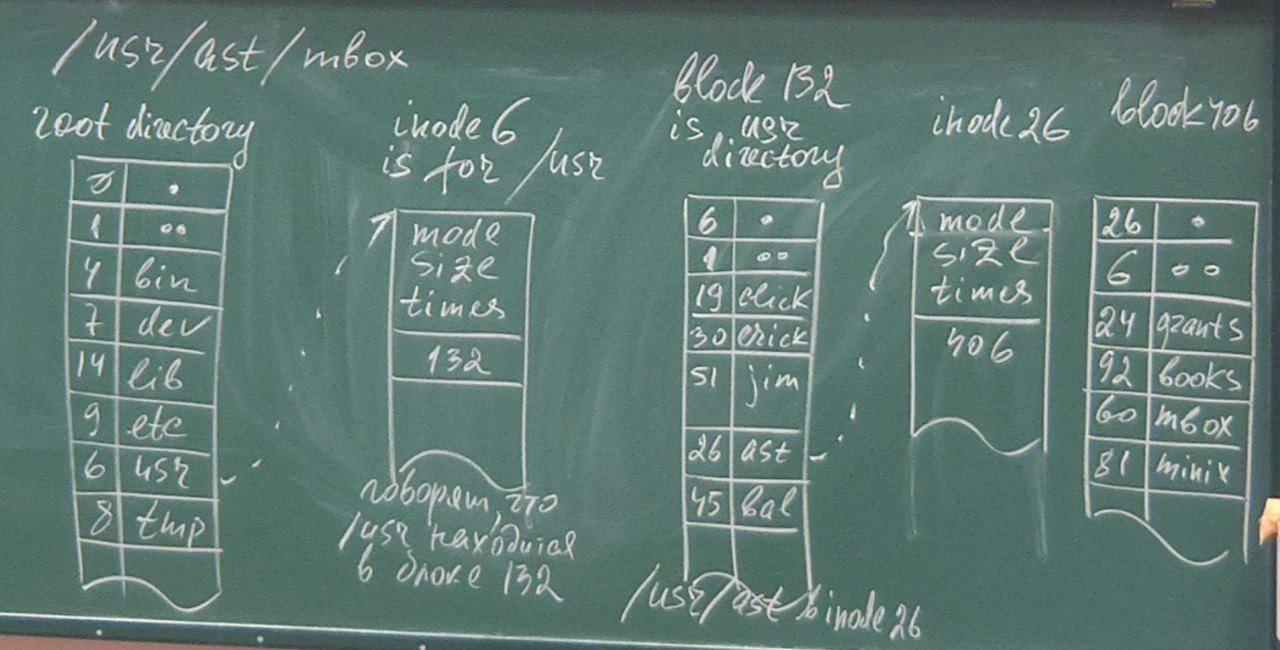 /usr/ast/mbox
root directory
0 .
1 ..
4 bin
7 dev
14 lib
9 etc
6 usr
8 tmp
inode 6
is for /usr
mode
size
times
132
говорят, что
/usr находится
в блоке 132
block 132
is usr
directory
6 .
1 ..
19 click
30 erick
51 jim
26 ast
45 bal
/usr/ast в inode 26
inode 26
mode
size
times
406
block 406
26 .
6 ..
24 grants
92 books
60 mbox
81 minix